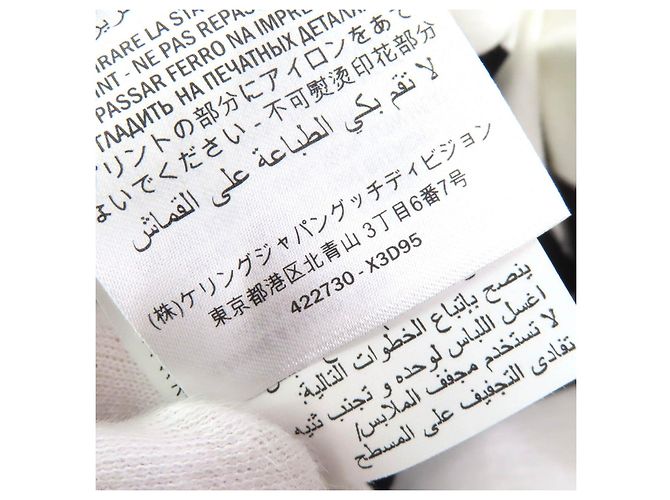 STIRARE LA STA
INT - NE PAS REPAS
PASSAR FERRO NA IMPRE
ГЛАДИТЬ НА ПЕЧАТНЫХ ДЕТАЛЯХ
プリントの部分にアイロンをあて
ないでください - 不可熨烫印花部分
لا تقم بكي الطباعة على القماش
(株)ケリングジャパングッチディビジョン
東京都港区北青山 3丁目6番7号
422730 - X3D95
ينصح بإتباع الخطوات التالية:
اغسل اللباس لوحده و تجنب ثنيه
لا تستخدم مجفف الملابس/
تفادى التجفيف على المسطح